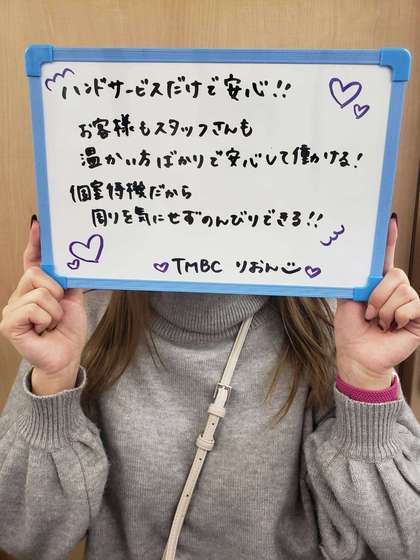 ハンドサービスだけで安心!!
お客様もスタッフさんも
温かい方ばかりで安心して働ける!
個室待機だから
周りを気にせずのんびりできる!!
TMBC りおん